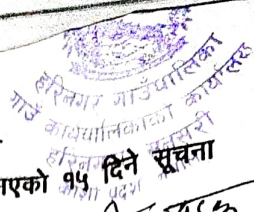 हरिनगर गाउँपालिका
गाउँ कार्यपालिकाको कार्यालय
हरिनगर सुनसरी
एको १५ दिने सूचना